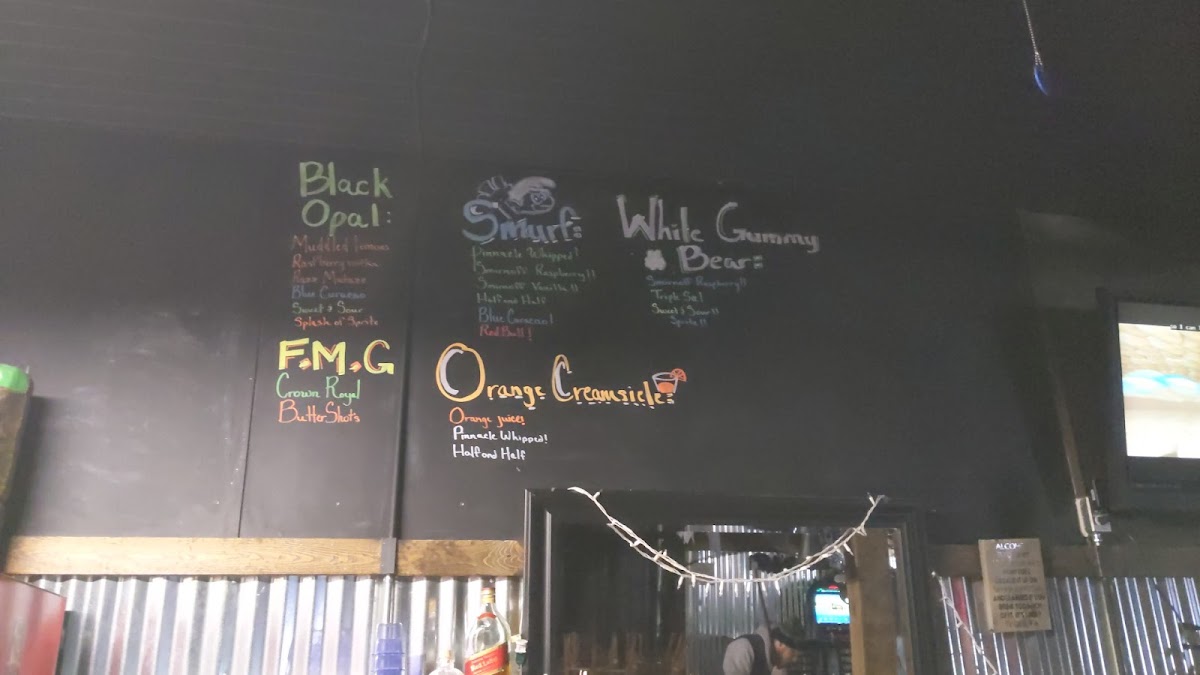 Black
Opal:
Muddled lemons
Raspberry vodka
Blue Curacao
Sweet & Sour
Splash of Sprite
F.M.G
Crown Royal
ButterShots
Smurf:
Pinnacle Whipped!
Smirnoff Raspberry!!
Smirnoff Vanilla!!
Half and Half
Blue Curacao!
Red Bull!
White Gummy
Bear:
Smirnoff Raspberry!!
Triple Sec!
Sweet & Sour!!
Sprite!!
Orange Creamsicle:
Orange juice!
Pinnacle Whipped!
Half and Half
Red Label